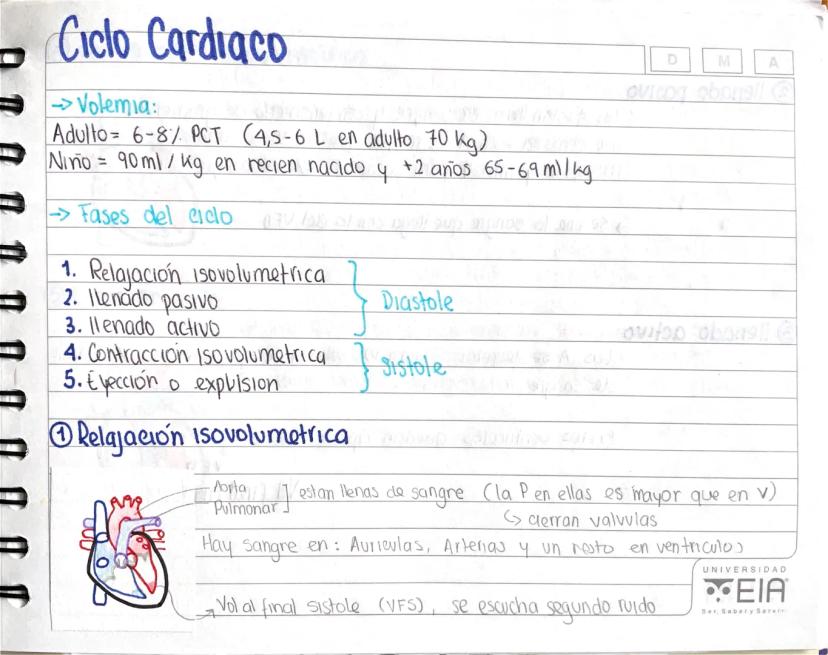 Ciclo Cardiaco
D M A
→ Volemia:
Adulto = 6-8% PCT (4,5-6 L en adulto 70 Kg)
Niño = 90 ml / Kg en recien nacido y +2 años 65-69 ml/kg
→ Fases del ciclo
1. Relajación isovolumetrica
2. llenado pasivo
3. llenado activo
Diastole
4. Contracción isovolumetrica
5. Eyección o explusion
Sistole
① Relajación isovolumetrica
Aorta
Pulmonar
] estan llenas de sangre (la P en ellas es mayor que en V)
↳ cierran valvulas
Hay sangre en: Auriculas, Arterias y un resto en ventriculos
→ Vol al final sistole (VFS), se escucha segundo ruido
UNIVERSIDAD
EIA
Ser, Saber y Servir